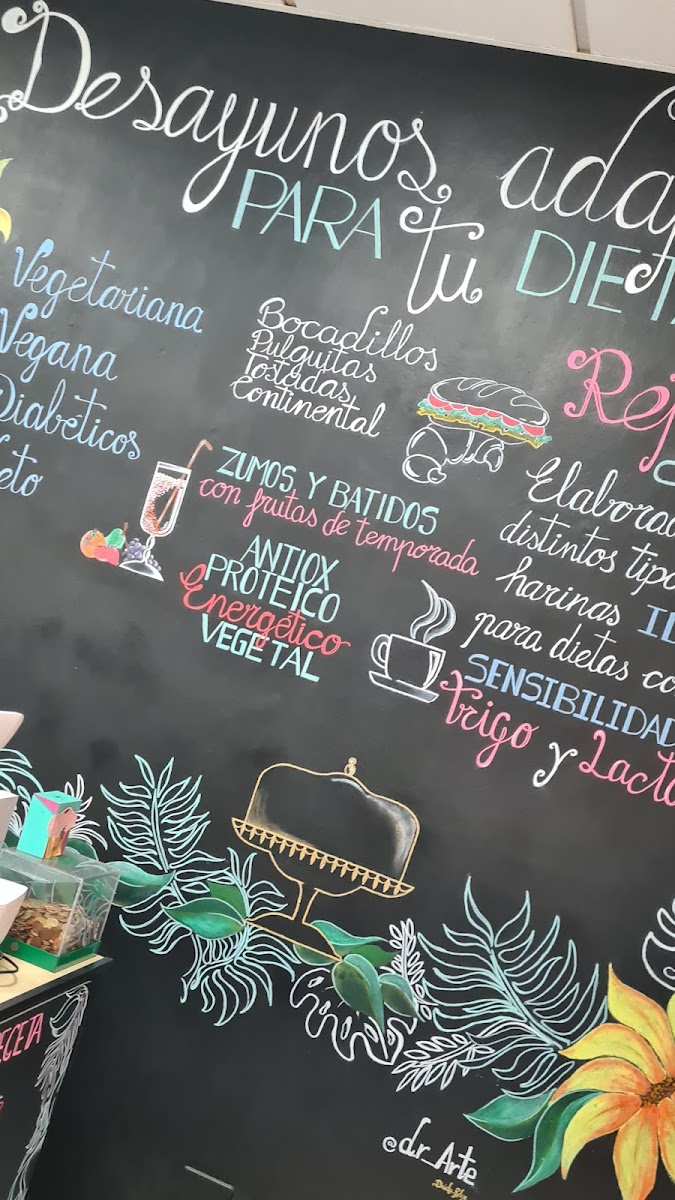 Desayunos adap
PARA tu DIETA
Vegetariana
Vegana
Diabéticos
Keto
Bocadillos
Pulguitas
Tostadas
Continental
ZUMOS Y BATIDOS
con frutas de temporada
ANTIOX
PROTEICO
Energético
VEGETAL
Rep
Elaborad
distintos tipo
harinas
para dietas co
SENSIBILIDAD
trigo y Lacto
ECETA
@d.r_Arte